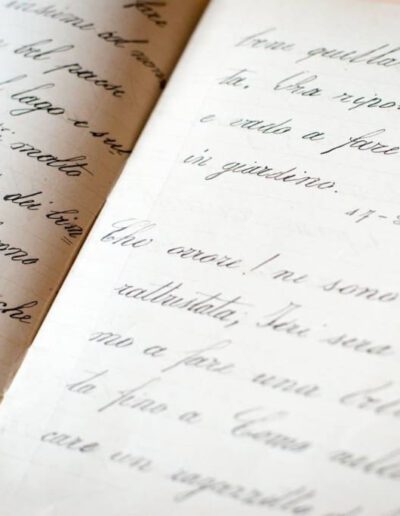 fare
insieme al non
bel paese
lago e sul
molto
dei bim
che
bene quella
ta. Ora ripo
e vado a fare
in giardino.
17-
Che orrore! mi sono
rattristata; Ieri sera
mo a fare una bel
ta fino a Como nell
care un ragazzetto d